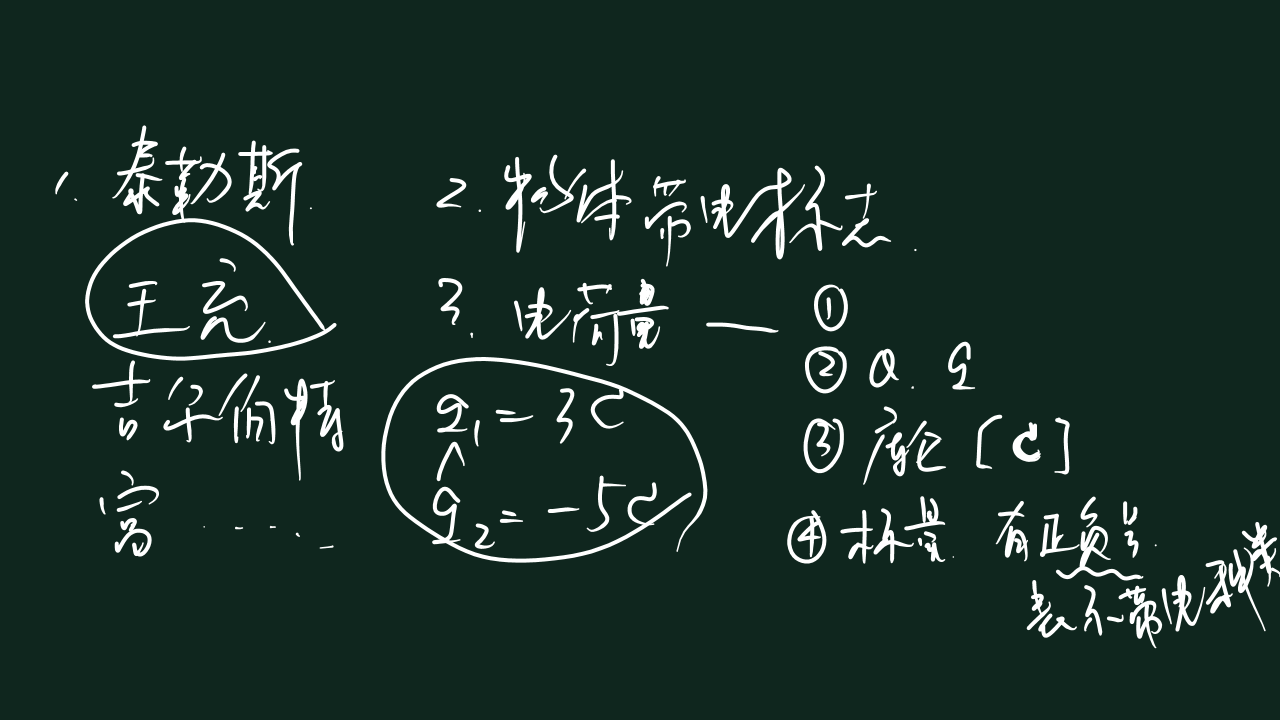 1. 泰勒斯.
王充.
吉尔伯特
富 ......
2. 物体带电标志.
3. 电荷量 — ①
② Q. q
③ 库仑 [C]
④ 标量. 有正负号.
表示带电种类
q₁ = 3C
^
q₂ = -5C